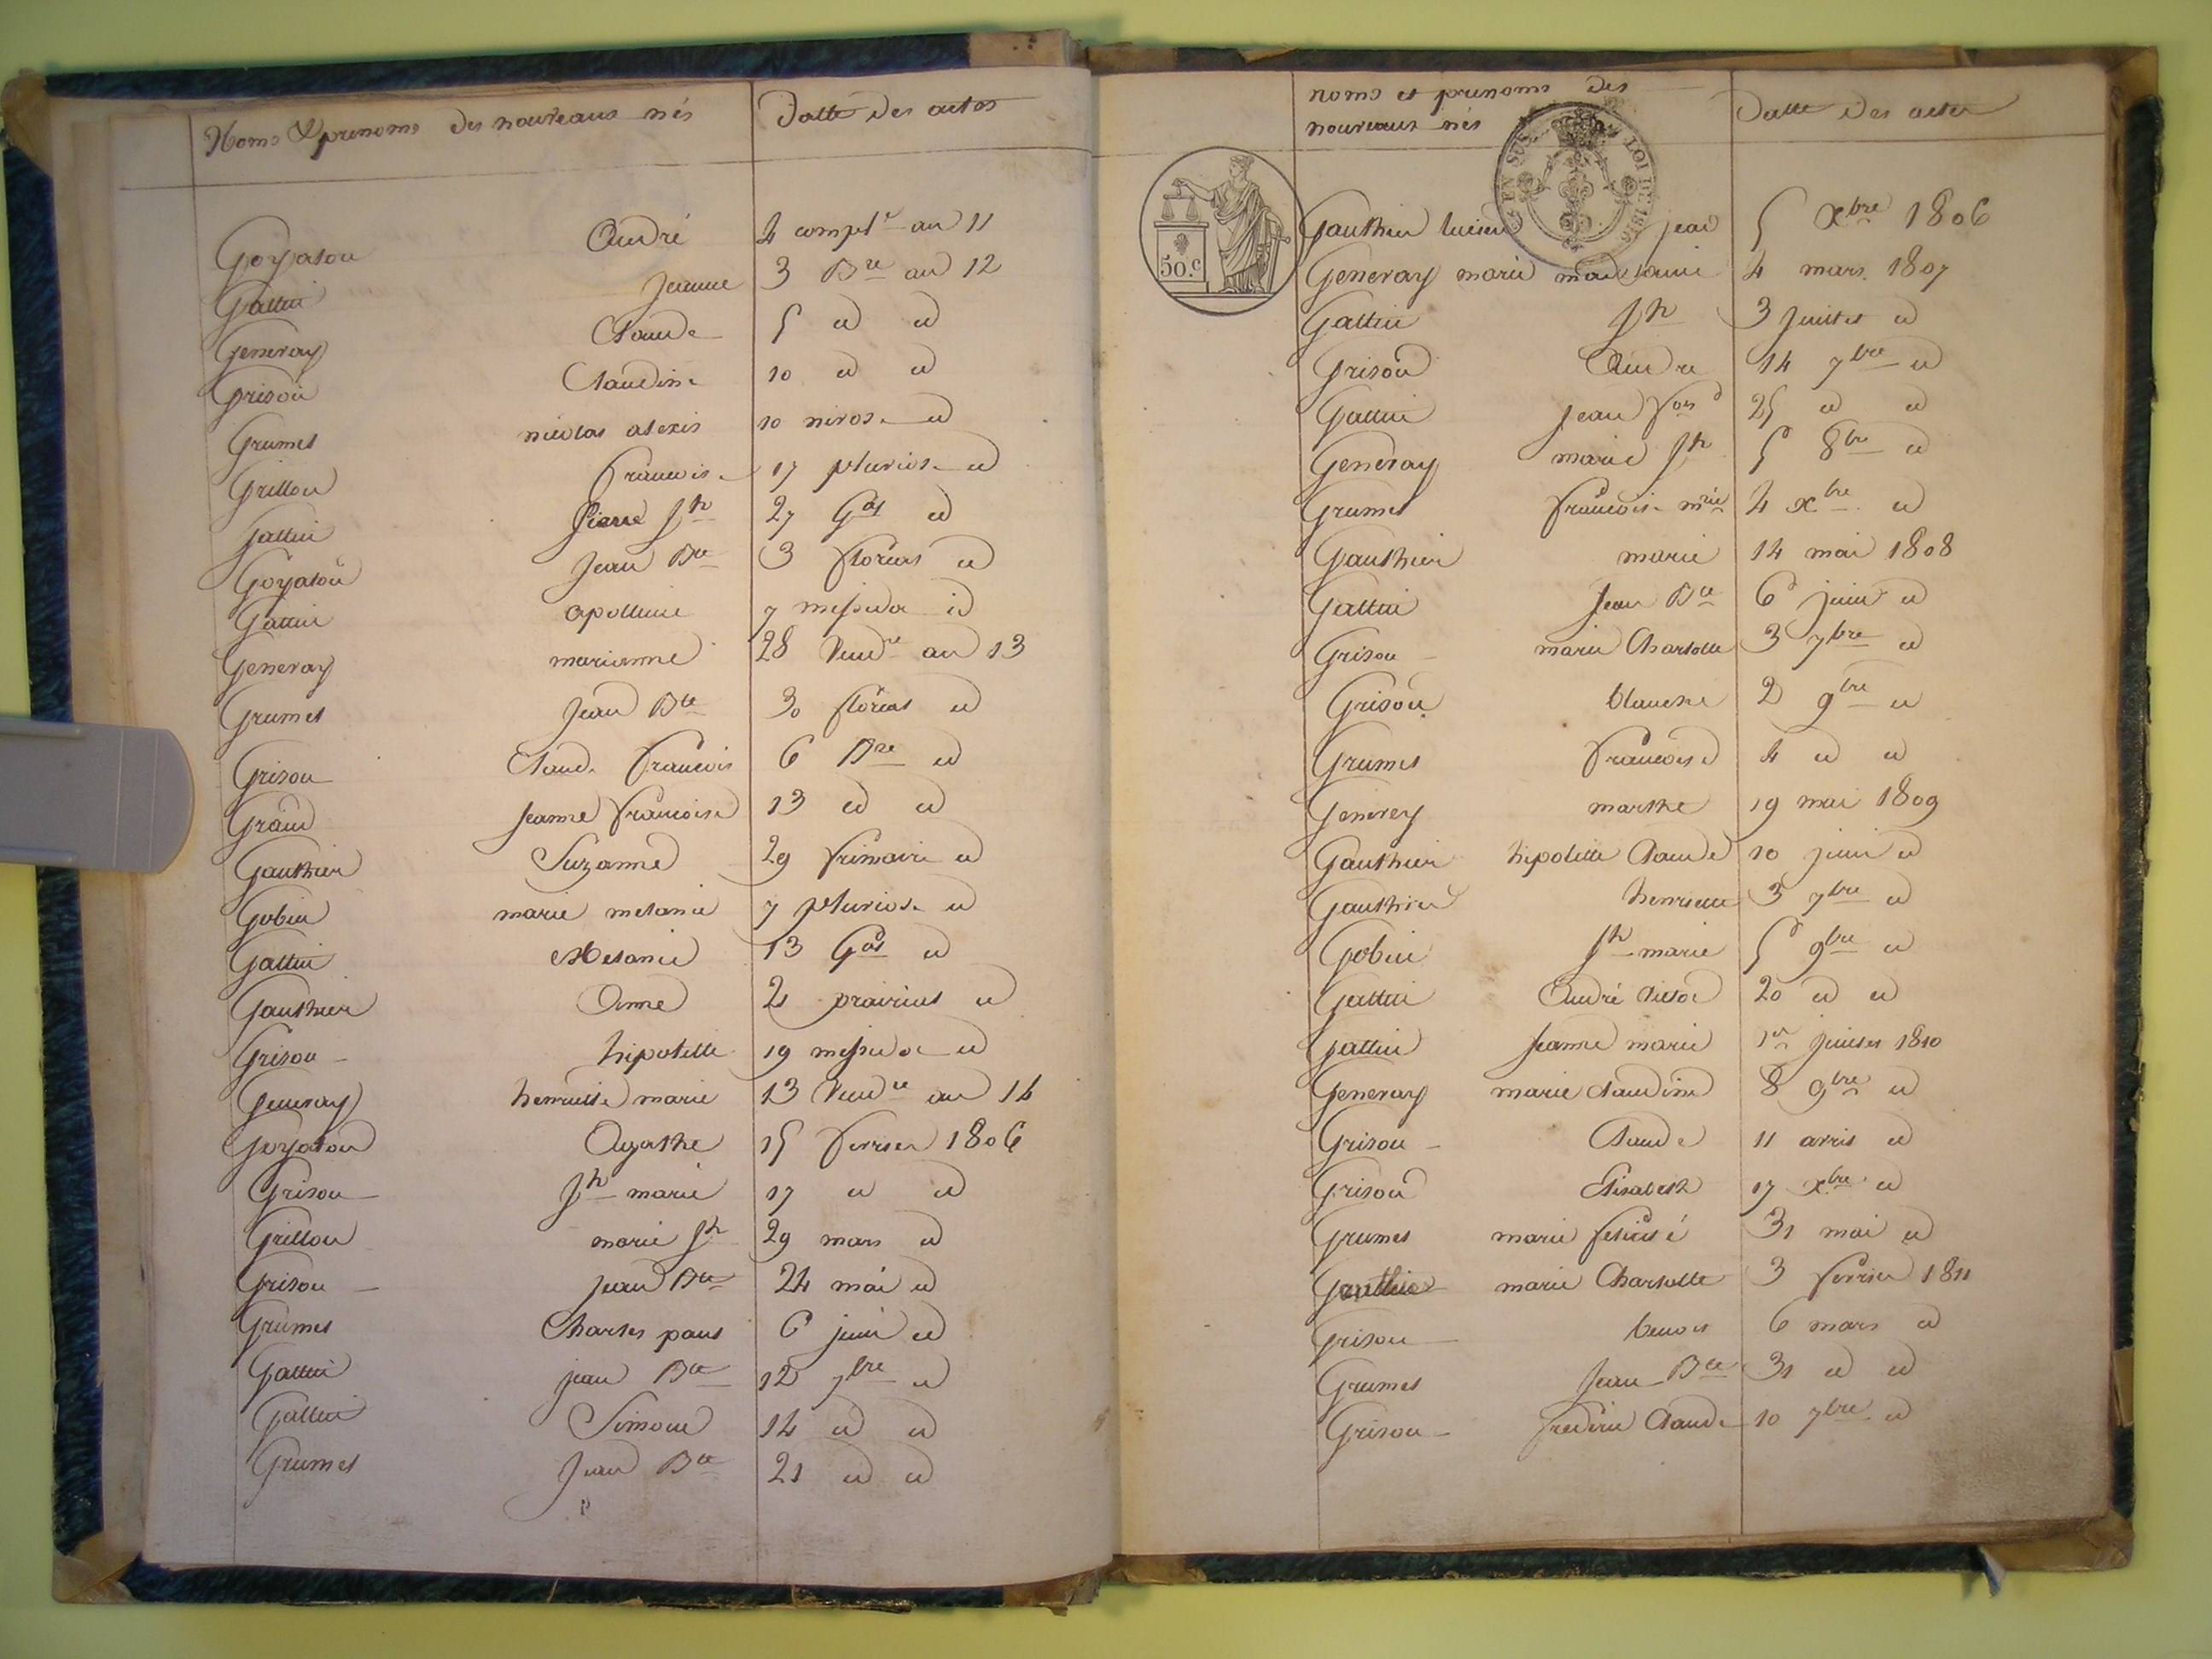 Noms & prenoms des nouveaux nés Datte des actes
Goyatou André 4 complre an 11
Gattin Jeanne 3 Bre an 12
Generay Claude 5 id id
Grisou Claudine 10 id id
Grumet nicolas alexis 10 nivose id
Grillou francoise 17 pluviose id
Gattin Pierre Jh 27 Gal id
Goyatou Jean Bte 3 floréal id
Gattin apolline 7 messidor id
Generay marianne 28 Vendre an 13
Grumet Jean Bte 30 floréal id
Grisou Claude francois 6 Bre id
Grand Jeanne francoise 13 id id
Gauthier Suzanne 29 frimaire id
Gobin marie melanie 7 pluviose id
Gattin Melanie 13 Gal id
Gauthier Anne 21 prairial id
Grisou hipolitte 19 messidor id
Generay henriette marie 13 Vendre an 14
Goyatou Agathe 15 fevrier 1806
Grisou Jh marie 17 id id
Grillou marie Jh 29 mars id
Grisou Jean Bte 24 mai id
Grumet Charles paul 6 juin id
Gattin jean Bte 12 7bre id
Gattin Simone 14 id id
Grumet Jean Bte 21 id id
noms et prenoms des
nouveaux nés Datte des actes
EN SUS LOI DE 1816
50.c
Gauthier lucien jean 5 Xbre 1806
Generay marie 4 mars 1807
Gattin Jh 3 Juillet id
Grisou André 14 7bre id
Gattin Jean fois 25 id id
Generay marie Jh 5 8bre id
Grumet francoise mrie 4 Xbre id
Gauthier marie 14 mai 1808
Gattin Jean Bte 6 juin id
Grisou marie Charlotte 3 7bre id
Grisou blanche 2 9bre id
Grumet francoise 4 id id
Generey marthe 19 mai 1809
Gauthier hipolitte Claude 10 juin id
Gauthier henriette 3 7bre id
Gobin Jh marie 5 9bre id
Gattin André Victor 20 id id
Gattin Jeanne marie 1er juillet 1810
Generay marie Claudine 8 9bre id
Grisou Claude 11 avril id
Grisou Elisabeth 17 Xbre id
Grumet marie felicité 31 mai id
Gauthier marie Charlotte 3 fevrier 1811
Grisou benoit 6 mars id
Grumet Jean Bte 31 id id
Grisou frederic Claude 10 7bre id